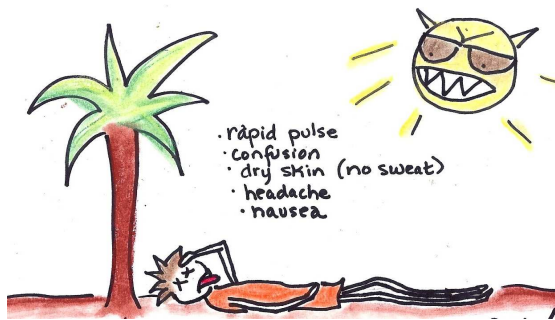 · rapid pulse
· confusion
· dry skin (no sweat)
· headache
· nausea